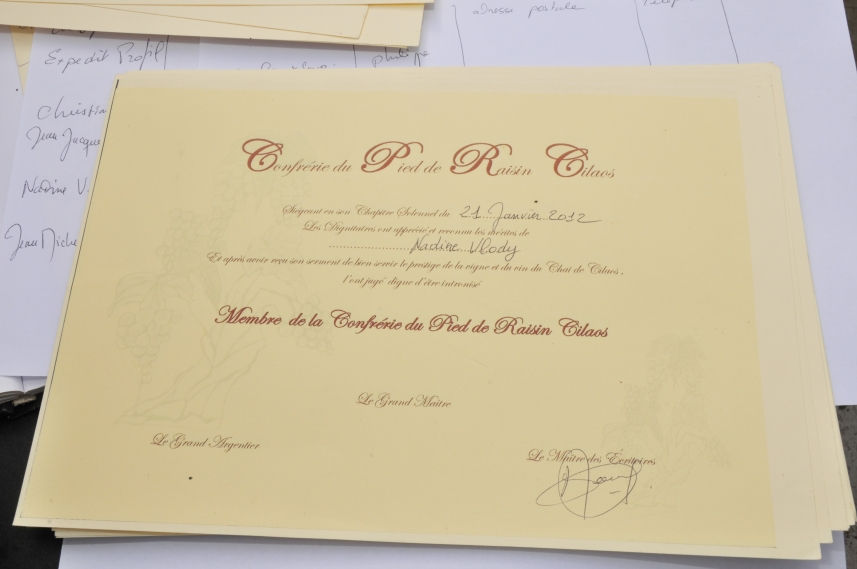 adresse postale
Expedit Profil
philippe
Christia
Jean Jacque
Nadine V.
Jean Miche
Confrérie du Pied de Raisin Cilaos
Siégeant en son Chapitre Solennel du 21 Janvier 2012
Les Dignitaires ont apprécié et reconnu les mérites de
Nadine Vlody
Et après avoir reçu son serment de bien servir le prestige de la vigne et du vin du Chai de Cilaos,
l'ont jugé digne d'être intronisé
Membre de la Confrérie du Pied de Raisin Cilaos
Le Grand Maître
Le Grand Argentier
Le Maître des Écritoires